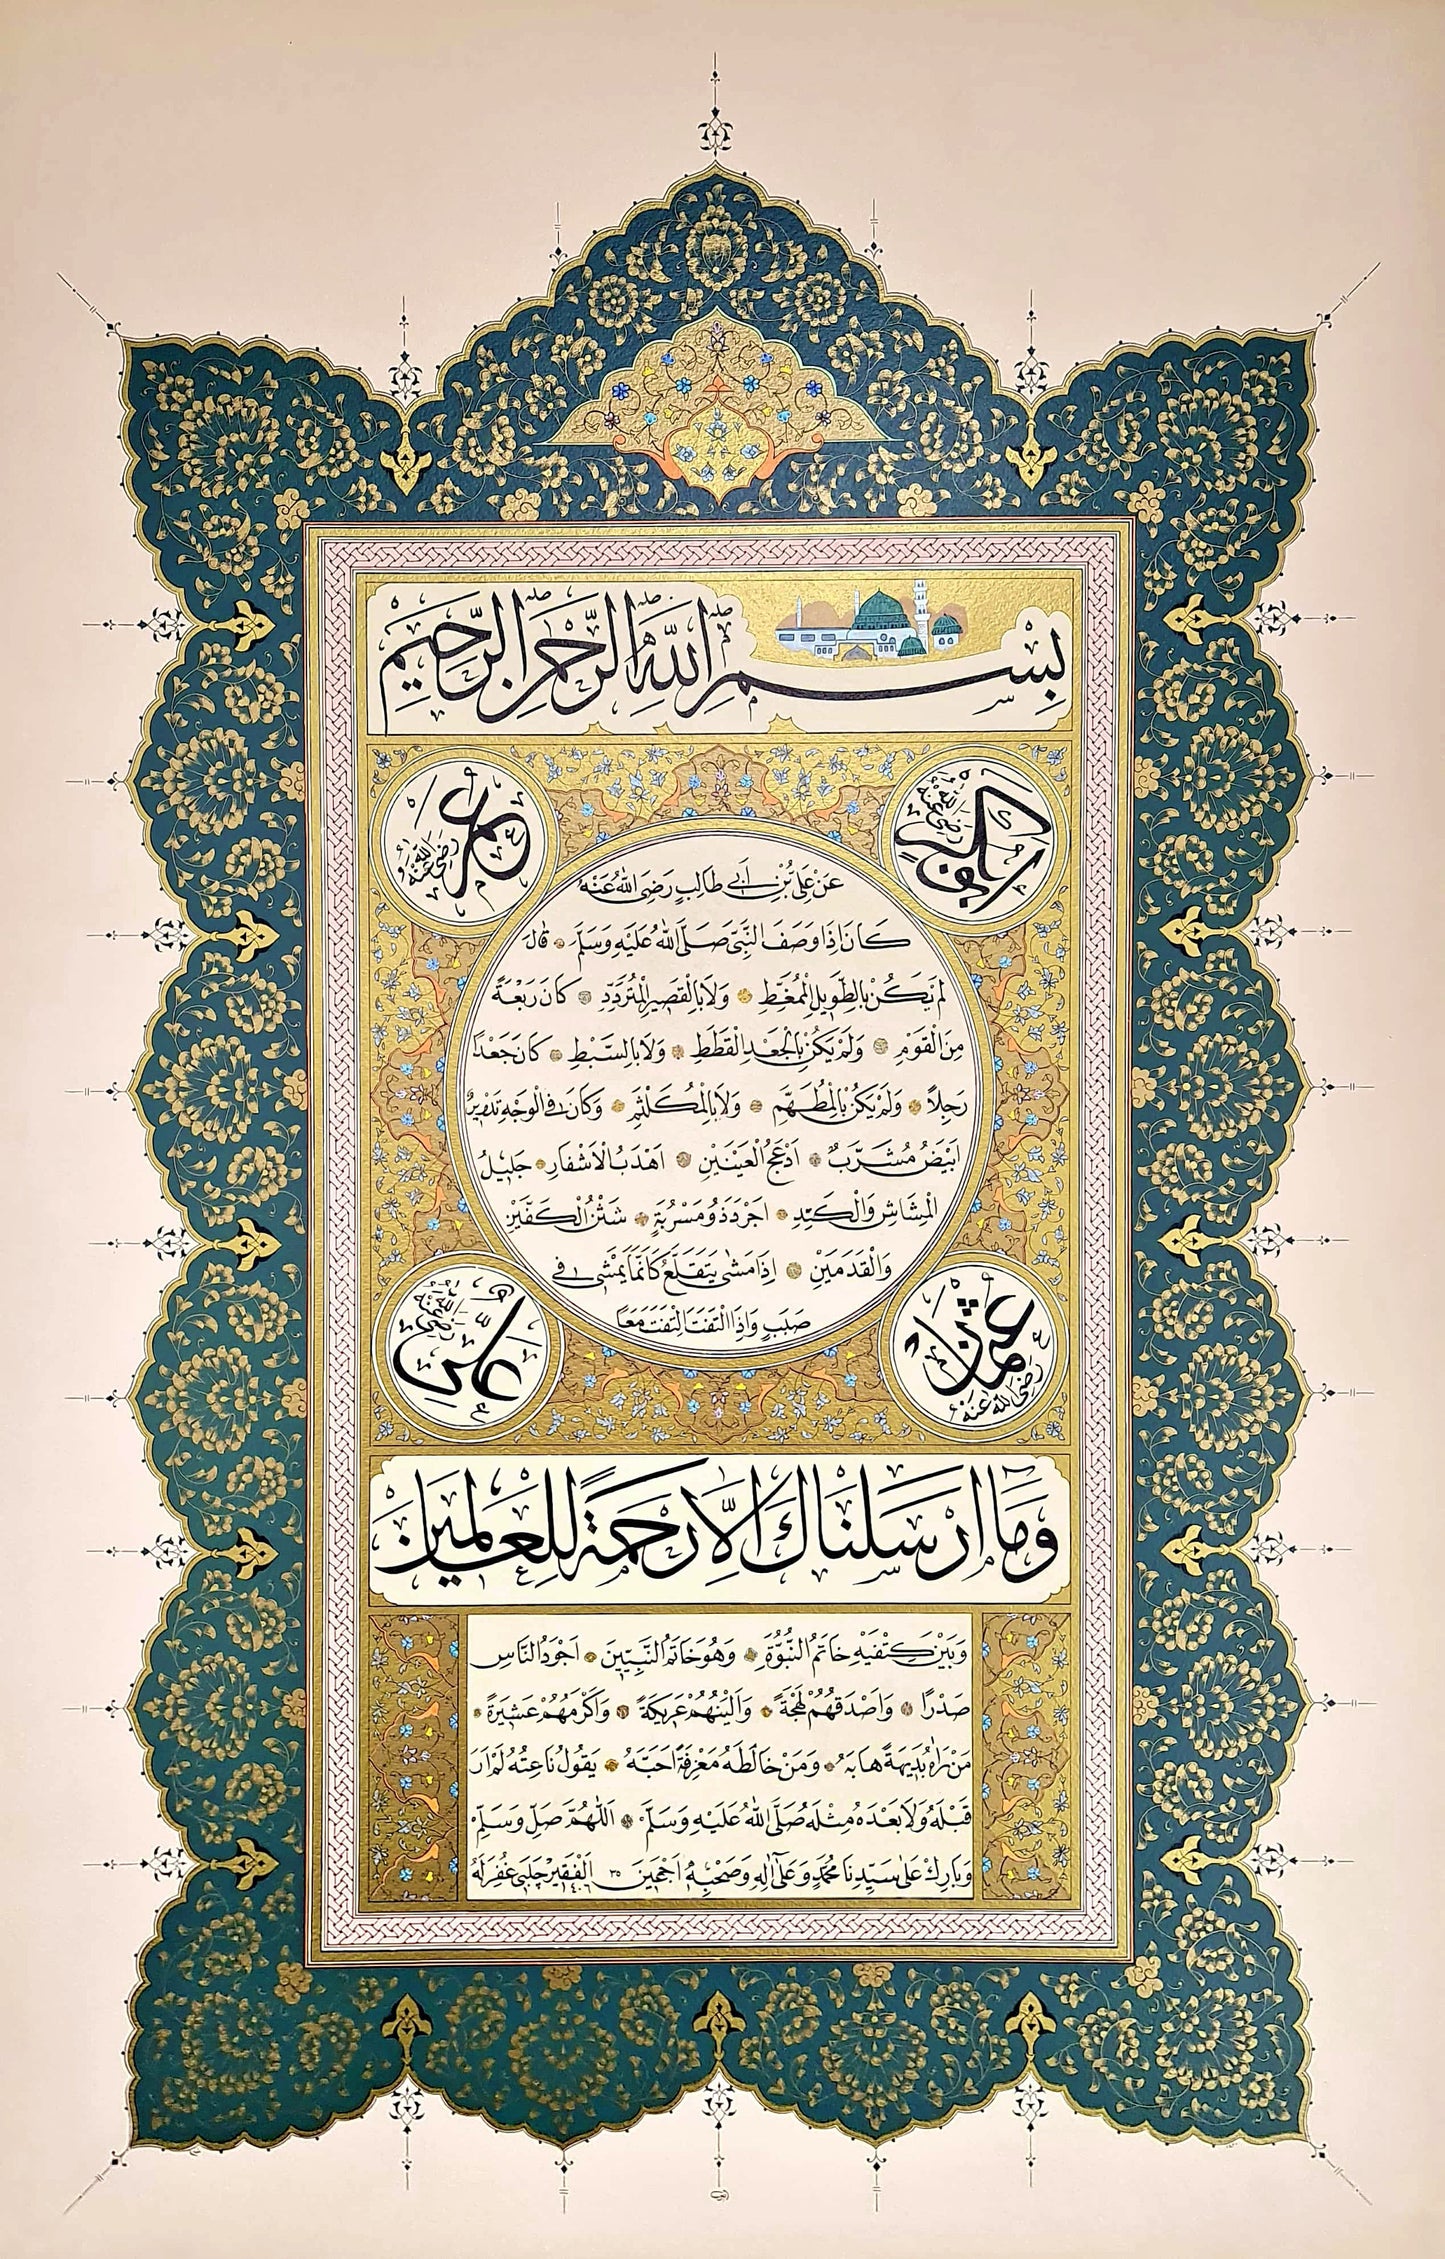 بِسْمِ اللّٰهِ الرَّحْمٰنِ الرَّحِيمِ
ابوبكر رَضِيَ اللّٰهُ عَنْهُ
عمر رَضِيَ اللّٰهُ عَنْهُ
عَنْ عَلِيِّ بْنِ اَبِي طَالِبٍ رَضِيَ اللّٰهُ عَنْهُ
كَانَ اِذَا وَصَفَ النَّبِيَّ صَلَّى اللّٰهُ عَلَيْهِ وَسَلَّمَ قَالَ
لَمْ يَكُنْ بِالطَّوِيلِ الْمُمَّغِطِ وَلَا بِالْقَصِيرِ الْمُتَرَدِّدِ كَانَ رَبْعَةً
مِنَ الْقَوْمِ وَلَمْ يَكُنْ بِالْجَعْدِ الْقَطَطِ وَلَا بِالسَّبْطِ كَانَ جَعْدًا
رَجِلًا وَلَمْ يَكُنْ بِالْمُطَهَّمِ وَلَا بِالْمُكَلْثَمِ وَكَانَ فِي الْوَجْهِ تَدْوِيرٌ
اَبْيَضُ مُشَرَّبٌ اَدْعَجُ الْعَيْنَيْنِ اَهْدَبُ الْاَشْفَارِ جَلِيلُ
الْمُشَاشِ وَالْكَتَدِ اَجْرَدُ ذُو مَسْرُبَةٍ شَثْنُ الْكَفَّيْنِ
وَالْقَدَمَيْنِ اِذَا مَشٰى يَتَقَلَّعُ كَاَنَّمَا يَمْشِي فِي
صَبَبٍ وَاِذَا الْتَفَتَ الْتَفَتَ مَعًا
عثمان رَضِيَ اللّٰهُ عَنْهُ
علي رَضِيَ اللّٰهُ عَنْهُ
وَمَا اَرْسَلْنَاكَ اِلَّا رَحْمَةً لِلْعَالَمِينَ
وَبَيْنَ كَتِفَيْهِ خَاتَمُ النُّبُوَّةِ وَهُوَ خَاتَمُ النَّبِيِّينَ اَجْوَدُ النَّاسِ
صَدْرًا وَاَصْدَقُهُمْ لَهْجَةً وَاَلْيَنُهُمْ عَرِيكَةً وَاَكْرَمُهُمْ عَشِيرَةً
مَنْ رَاٰهُ بَدِيهَةً هَابَهُ وَمَنْ خَالَطَهُ مَعْرِفَةً اَحَبَّهُ يَقُولُ نَاعِتُهُ لَمْ اَرَ
قَبْلَهُ وَلَا بَعْدَهُ مِثْلَهُ صَلَّى اللّٰهُ عَلَيْهِ وَسَلَّمَ اَللّٰهُمَّ صَلِّ وَسَلِّمْ
وَبَارِكْ عَلٰى سَيِّدِنَا مُحَمَّدٍ وَعَلٰى اٰلِهِ وَصَحْبِهِ اَجْمَعِينَ ٣٥ اَلْفَقِيرْ چَلَبِي غُفِرَ لَهُ ١٤٠٦